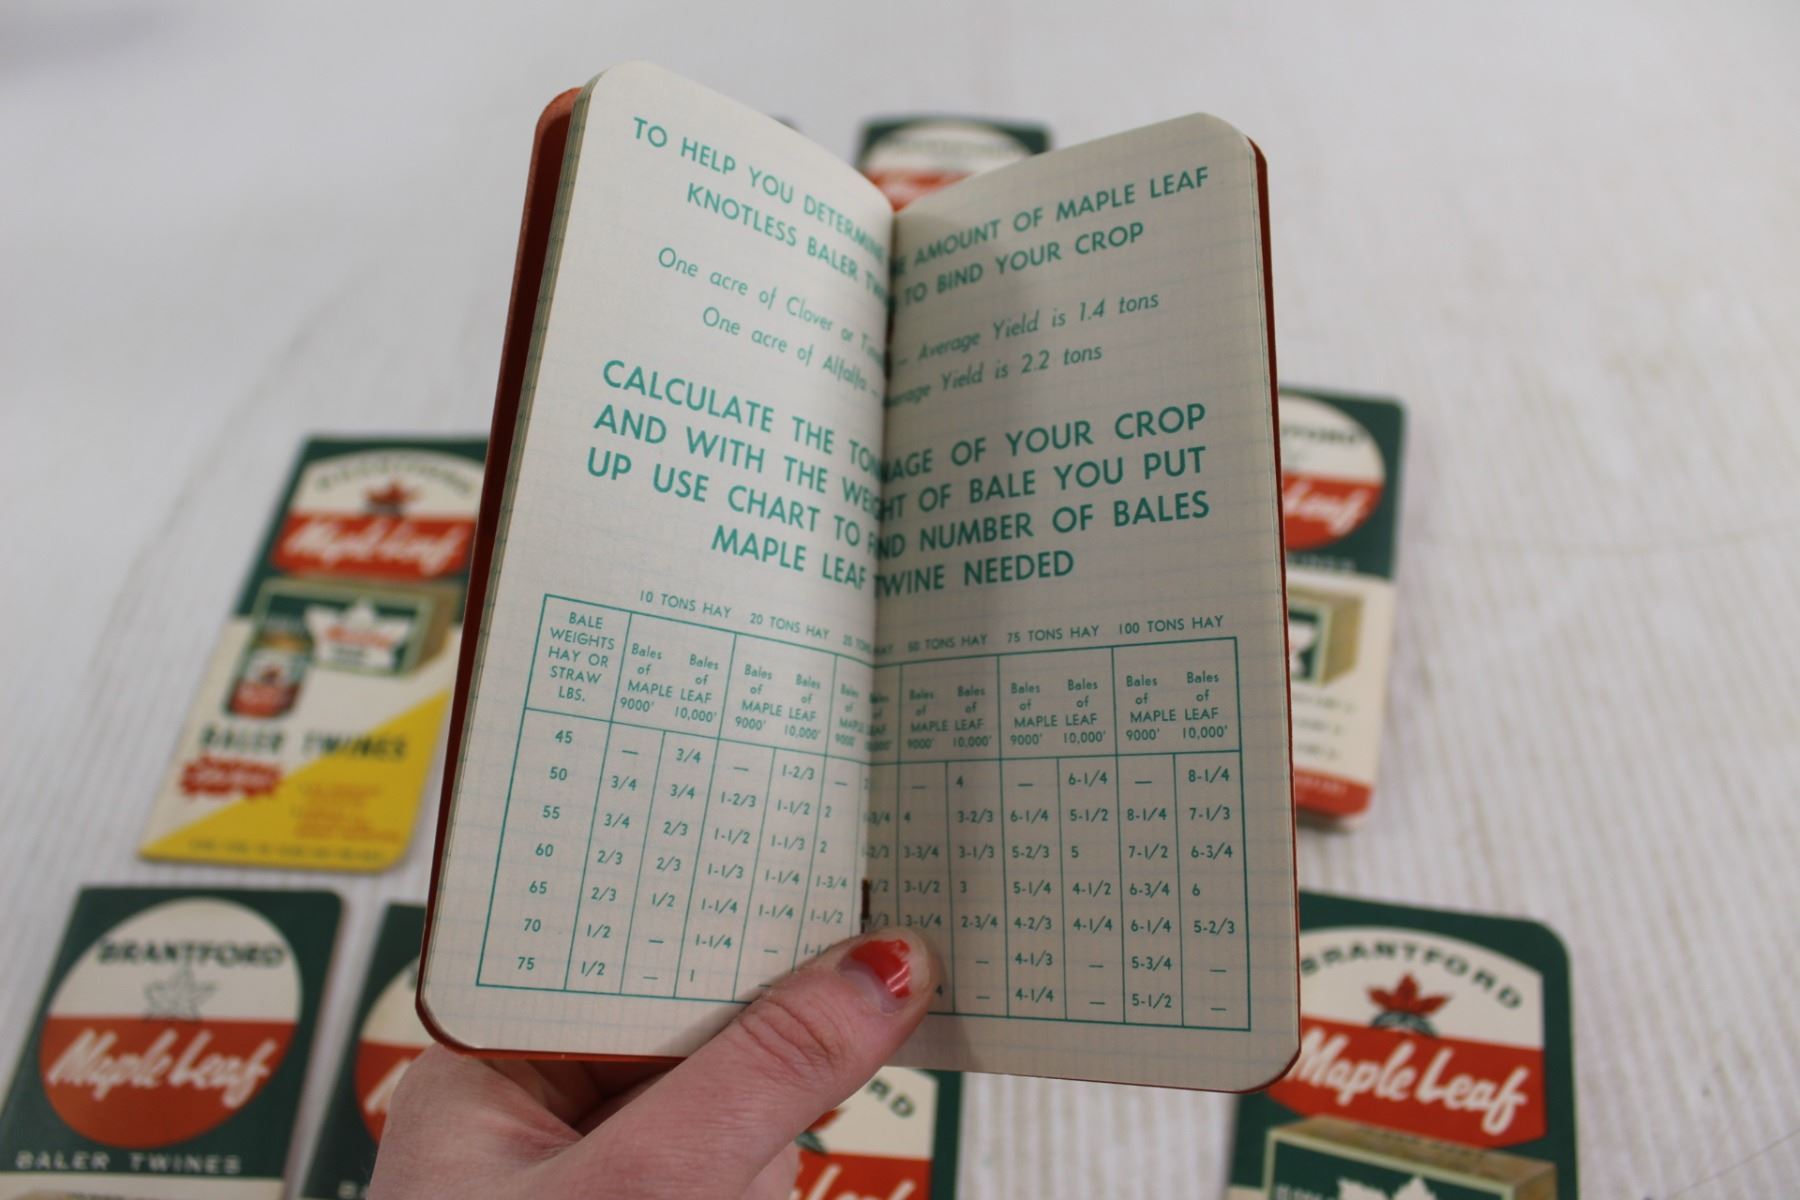 TO HELP YOU DETERMINE AMOUNT OF MAPLE LEAF
KNOTLESS BALER TO BIND YOUR CROP
One acre of Clover or — Average Yield is 1.4 tons
One acre of Alfalfa — Yield is 2.2 tons
CALCULATE THE TONNAGE OF YOUR CROP
AND WITH THE WEIGHT OF BALE YOU PUT
UP USE CHART TO FIND NUMBER OF BALES
MAPLE LEAF TWINE NEEDED
10 TONS HAY 20 TONS HAY 50 TONS HAY 75 TONS HAY 100 TONS HAY
BALE WEIGHTS HAY OR STRAW LBS.
Bales of Bales of Bales of Bales of Bales of Bales of Bales of Bales of Bales of Bales of Bales of
MAPLE LEAF MAPLE LEAF MAPLE LEAF MAPLE LEAF MAPLE LEAF
9000' 10,000' 9000' 10,000' 9000' 9000' 10,000' 9000' 10,000' 9000' 10,000'
45 — 3/4 — 1-2/3 — — 4 — 6-1/4 — 8-1/4
50 3/4 3/4 1-2/3 1-1/2 2 4 3-2/3 6-1/4 5-1/2 8-1/4 7-1/3
55 3/4 2/3 1-1/2 1-1/3 2 3-3/4 3-1/3 5-2/3 5 7-1/2 6-3/4
60 2/3 2/3 1-1/3 1-1/4 1-3/4 3-1/2 3 5-1/4 4-1/2 6-3/4 6
65 2/3 1/2 1-1/4 1-1/4 1-1/2 3-1/4 2-3/4 4-2/3 4-1/4 6-1/4 5-2/3
70 1/2 — 1-1/4 — — 4-1/3 — 5-3/4 —
75 1/2 — 1 — — 4-1/4 — 5-1/2 —
Maple Leaf
BALER TWINES
BRANTFORD
Maple Leaf
BALER TWINES
BRANTFORD
Maple Leaf